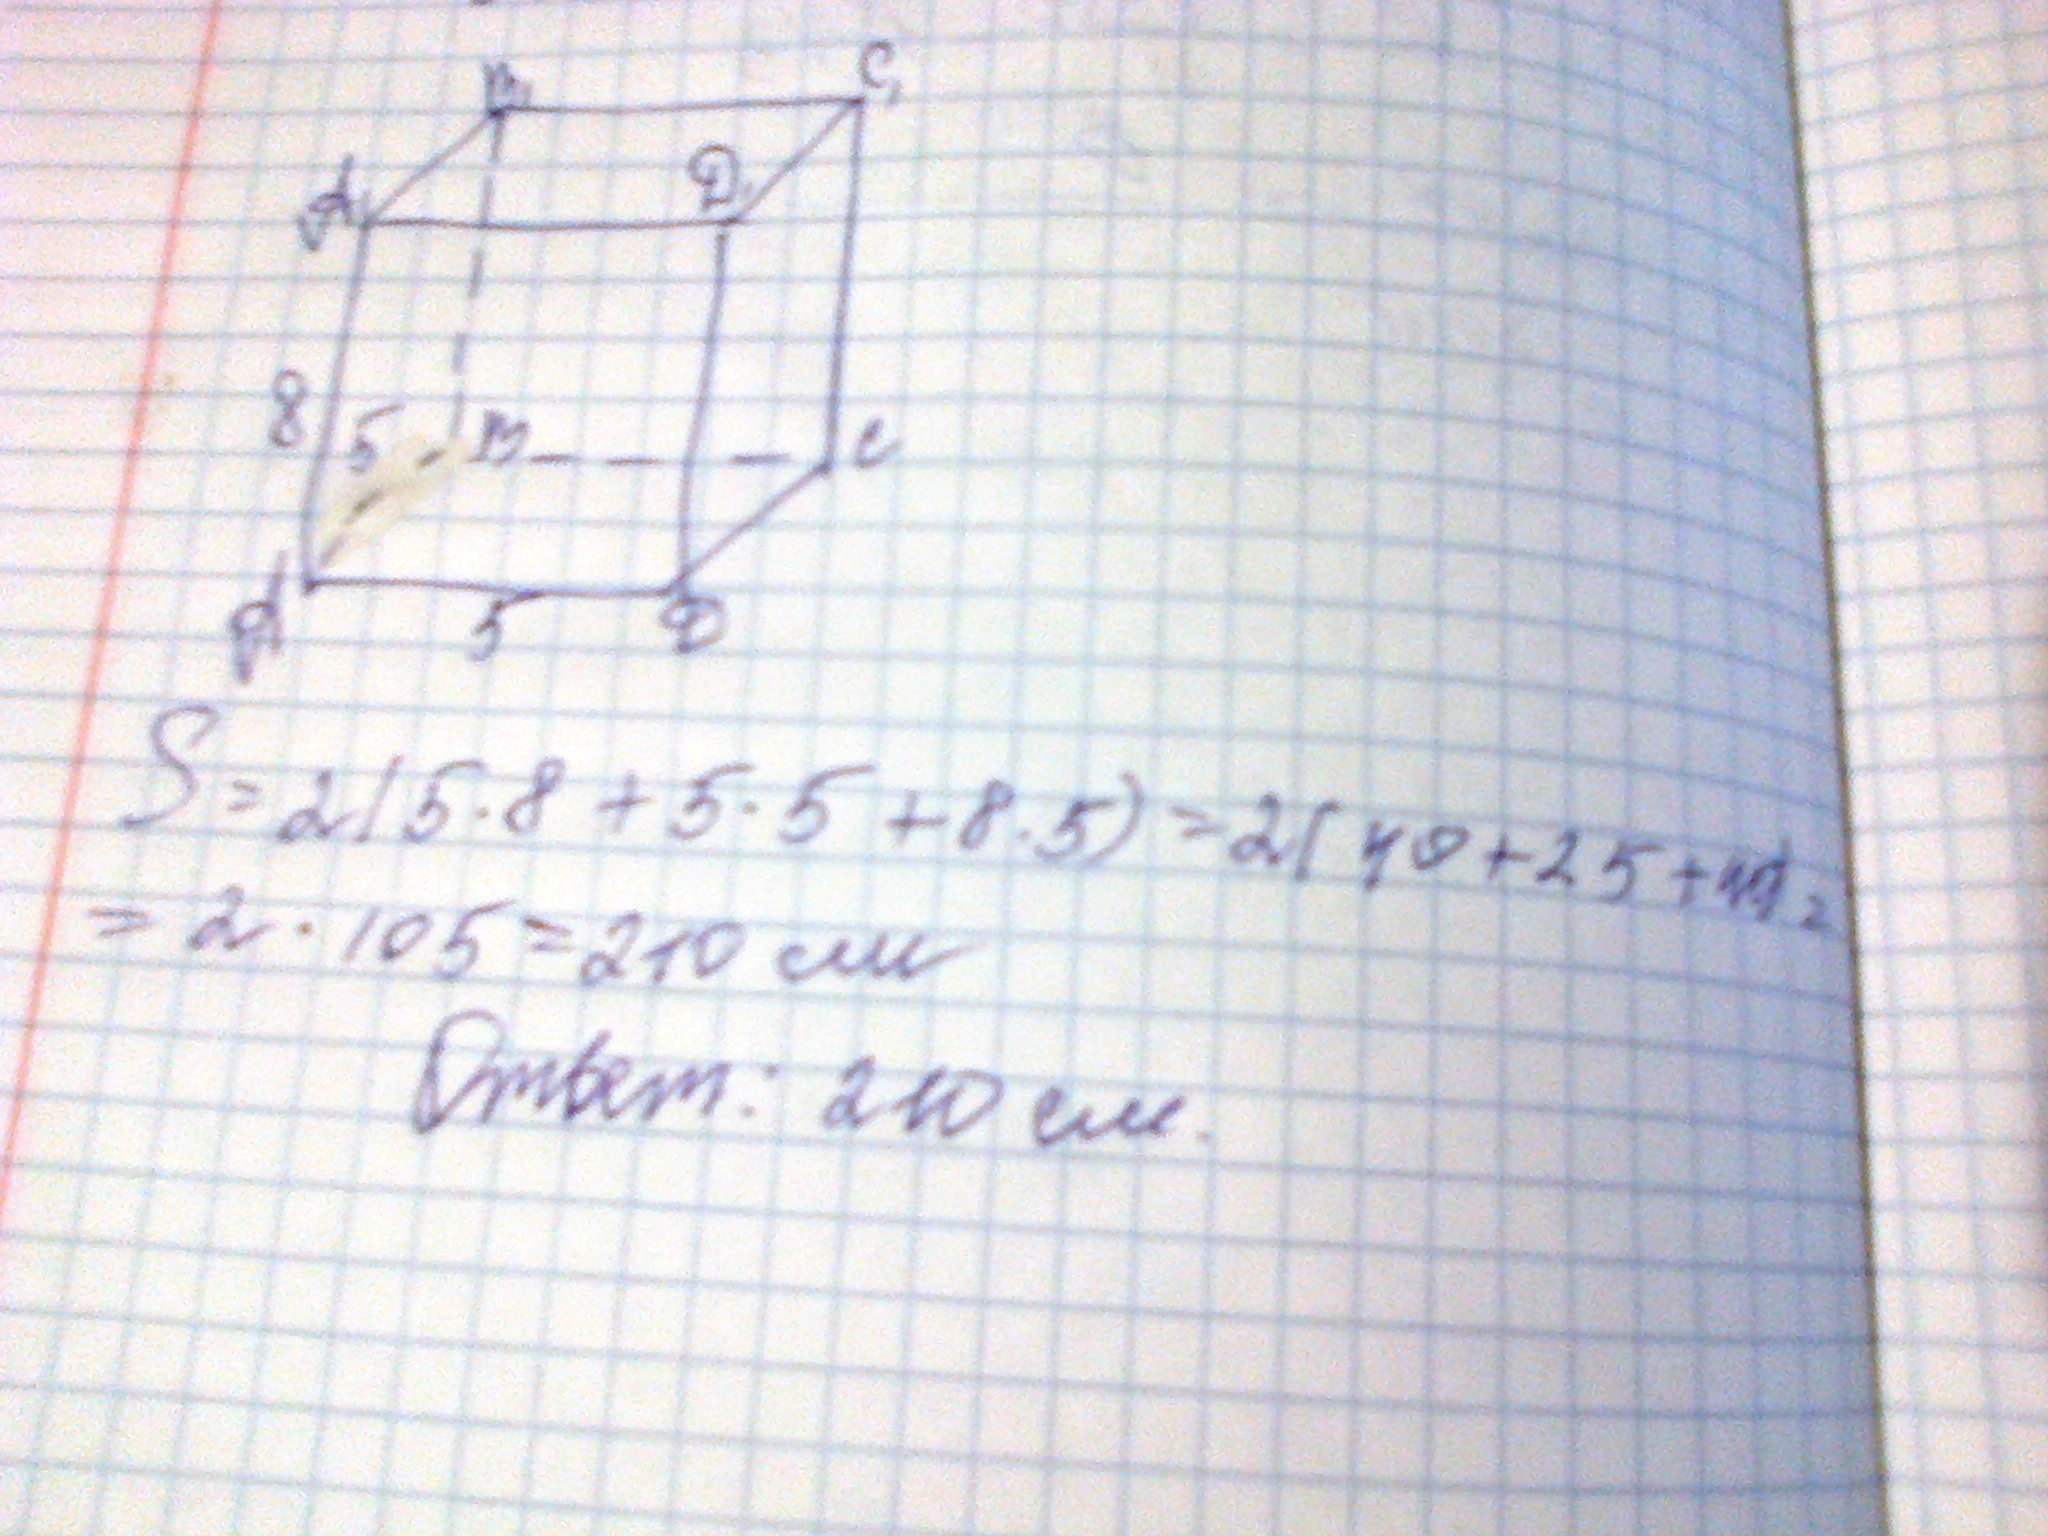 B₁ C₁
A₁ D₁
8 5 B C
A 5 D
S = 2(5·8 + 5·5 + 8·5) = 2(40+25+40)=
= 2·105 = 210 см
Ответ: 210 см.